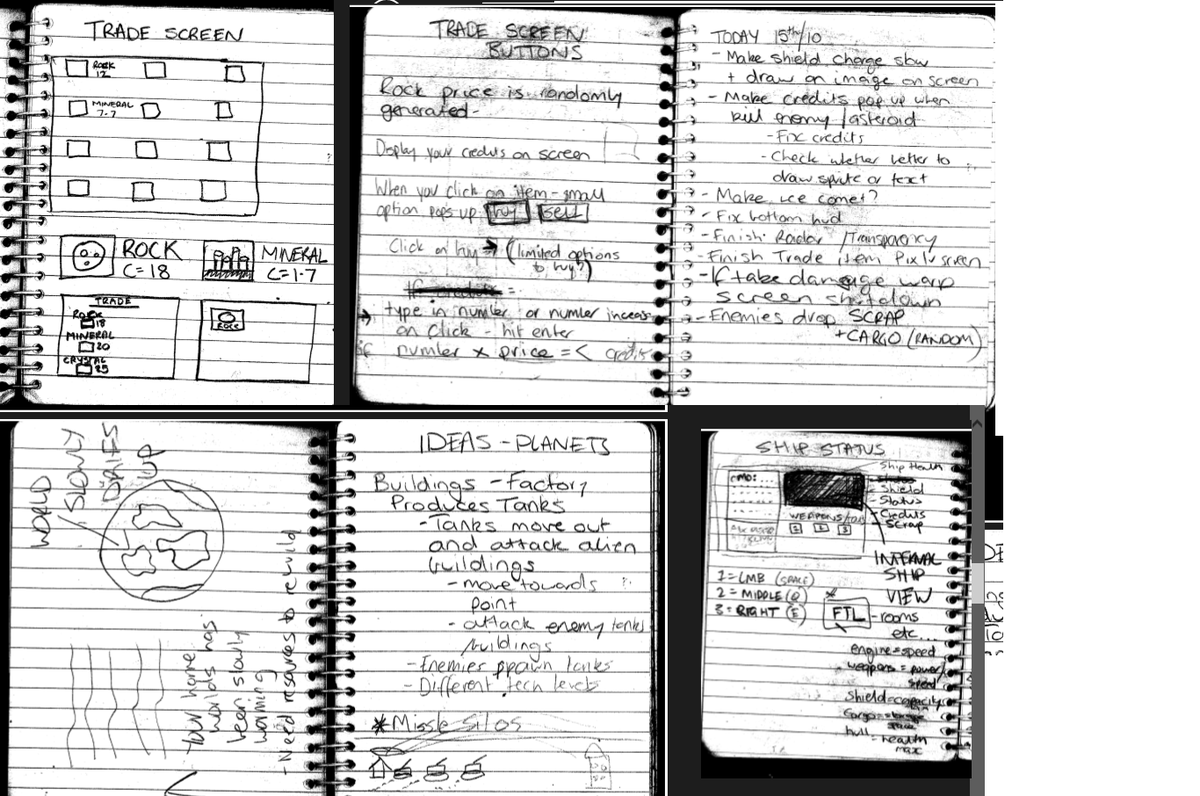 TRADE SCREEN
ROCK
12
MINERAL
7.7
ROCK
C=18
MINERAL
C=1.7
TRADE
ROCK
18
MINERAL
20
CRYSTAL
25
ROCK
TRADE SCREEN
BUTTONS
Rock price is randomly
generated -
Display your credits on screen
When you click on item - small
option pops up buy sell
Click on buy → (limited options
to buy?)
→ type in number or number increase
on click - hit enter
if number x price =< credits
TODAY 15th/10
- Make shield charge slow
+ draw an image on screen
- Make credits pop up when
kill enemy/asteroid
- Fix credits
- Check whether better to
draw sprite or text
- Make ice comet?
- Fix bottom hud
- Finish Radar /Transparency
- Finish Trade item Pixlv screen
- If take damage warp
screen shutdown
- Enemies drop SCRAP
+ CARGO (RANDOM)
WORLD
SLOWLY
DRIFTS
UP
Your home
worlds has
been slowly
- Need resources to rebuild
IDEAS - PLANETS
Buildings - Factory
Produces Tanks
- Tanks move out
and attack alien
buildings
- move towards
point
- attack enemy tanks
/buildings
- Enemies spawn tanks
- Different tech levels
*Missle Silos
SHIP STATUS
CMD:
WEAPONS
1 2 3
Ship Health
Shield
Status
Credits
Scrap
INTERNAL
SHIP
VIEW
1 = LMB (SPACE)
2 = MIDDLE (Q)
3 = RIGHT (E)
FTL
- rooms
etc...
engine = speed
weapons = power/
speed
shield = capacity
Cargo = storage
space
hull = health
max